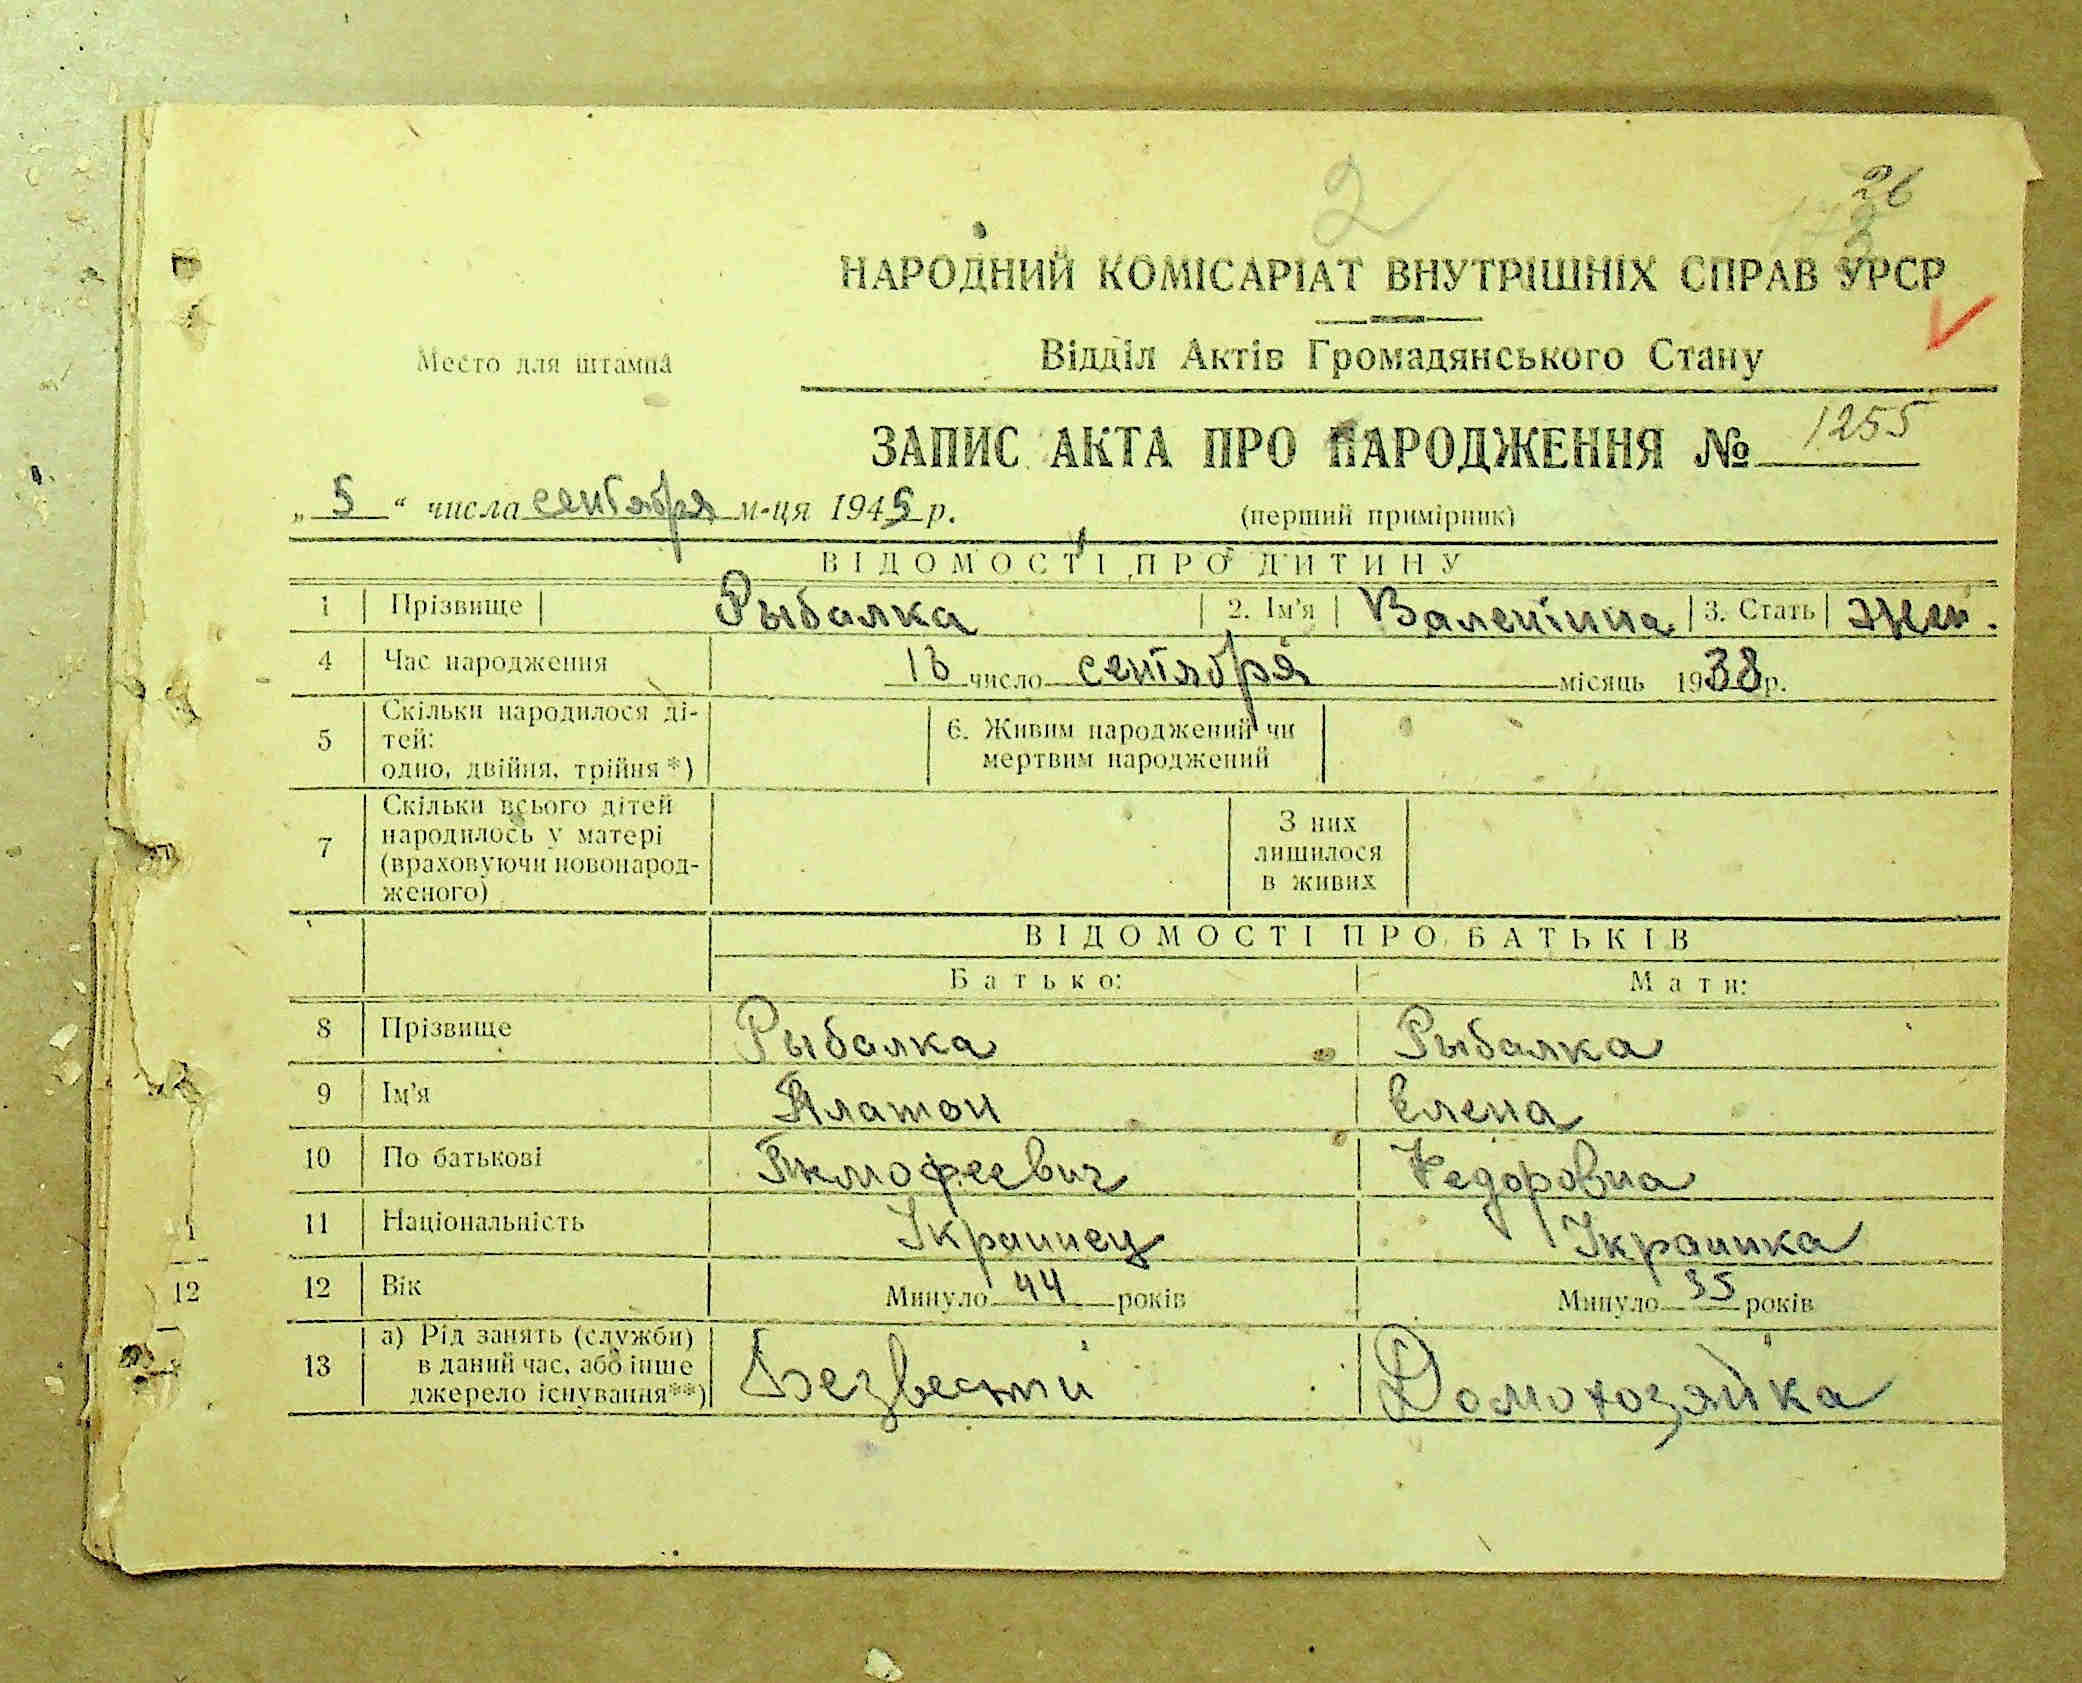 2
26
НАРОДНИЙ КОМІСАРІАТ ВНУТРІШНІХ СПРАВ УРСР
Место для штампа
Відділ Актів Громадянського Стану
ЗАПИС АКТА ПРО НАРОДЖЕННЯ № 1255
„ 5 “ числа сентября м-ця 1945 р.
(перший примірник)
ВІДОМОСТІ ПРО ДИТИНУ
1 Прізвище Рыбалка 2. Ім'я Валентина 3. Стать жен.
4 Час народження 13 число сентября місяць 1938 р.
5 Скільки народилося ді-
тей:
одно, двійня, трійня *)
6. Живим народжений чи
мертвим народжений
7 Скільки всього дітей
народилось у матері
(враховуючи новонарод-
женого)
З них
лишилося
в живих
ВІДОМОСТІ ПРО БАТЬКІВ
Батько: Мати:
8 Прізвище Рыбалка Рыбалка
9 Ім'я Платон Елена
10 По батькові Тимофеевич Федоровна
11 Національність Украинец Украинка
12 12 Вік Минуло 44 років Минуло 35 років
13 а) Рід занять (служби)
в даний час, або інше
джерело існування**)
Безвести Домохозяйка